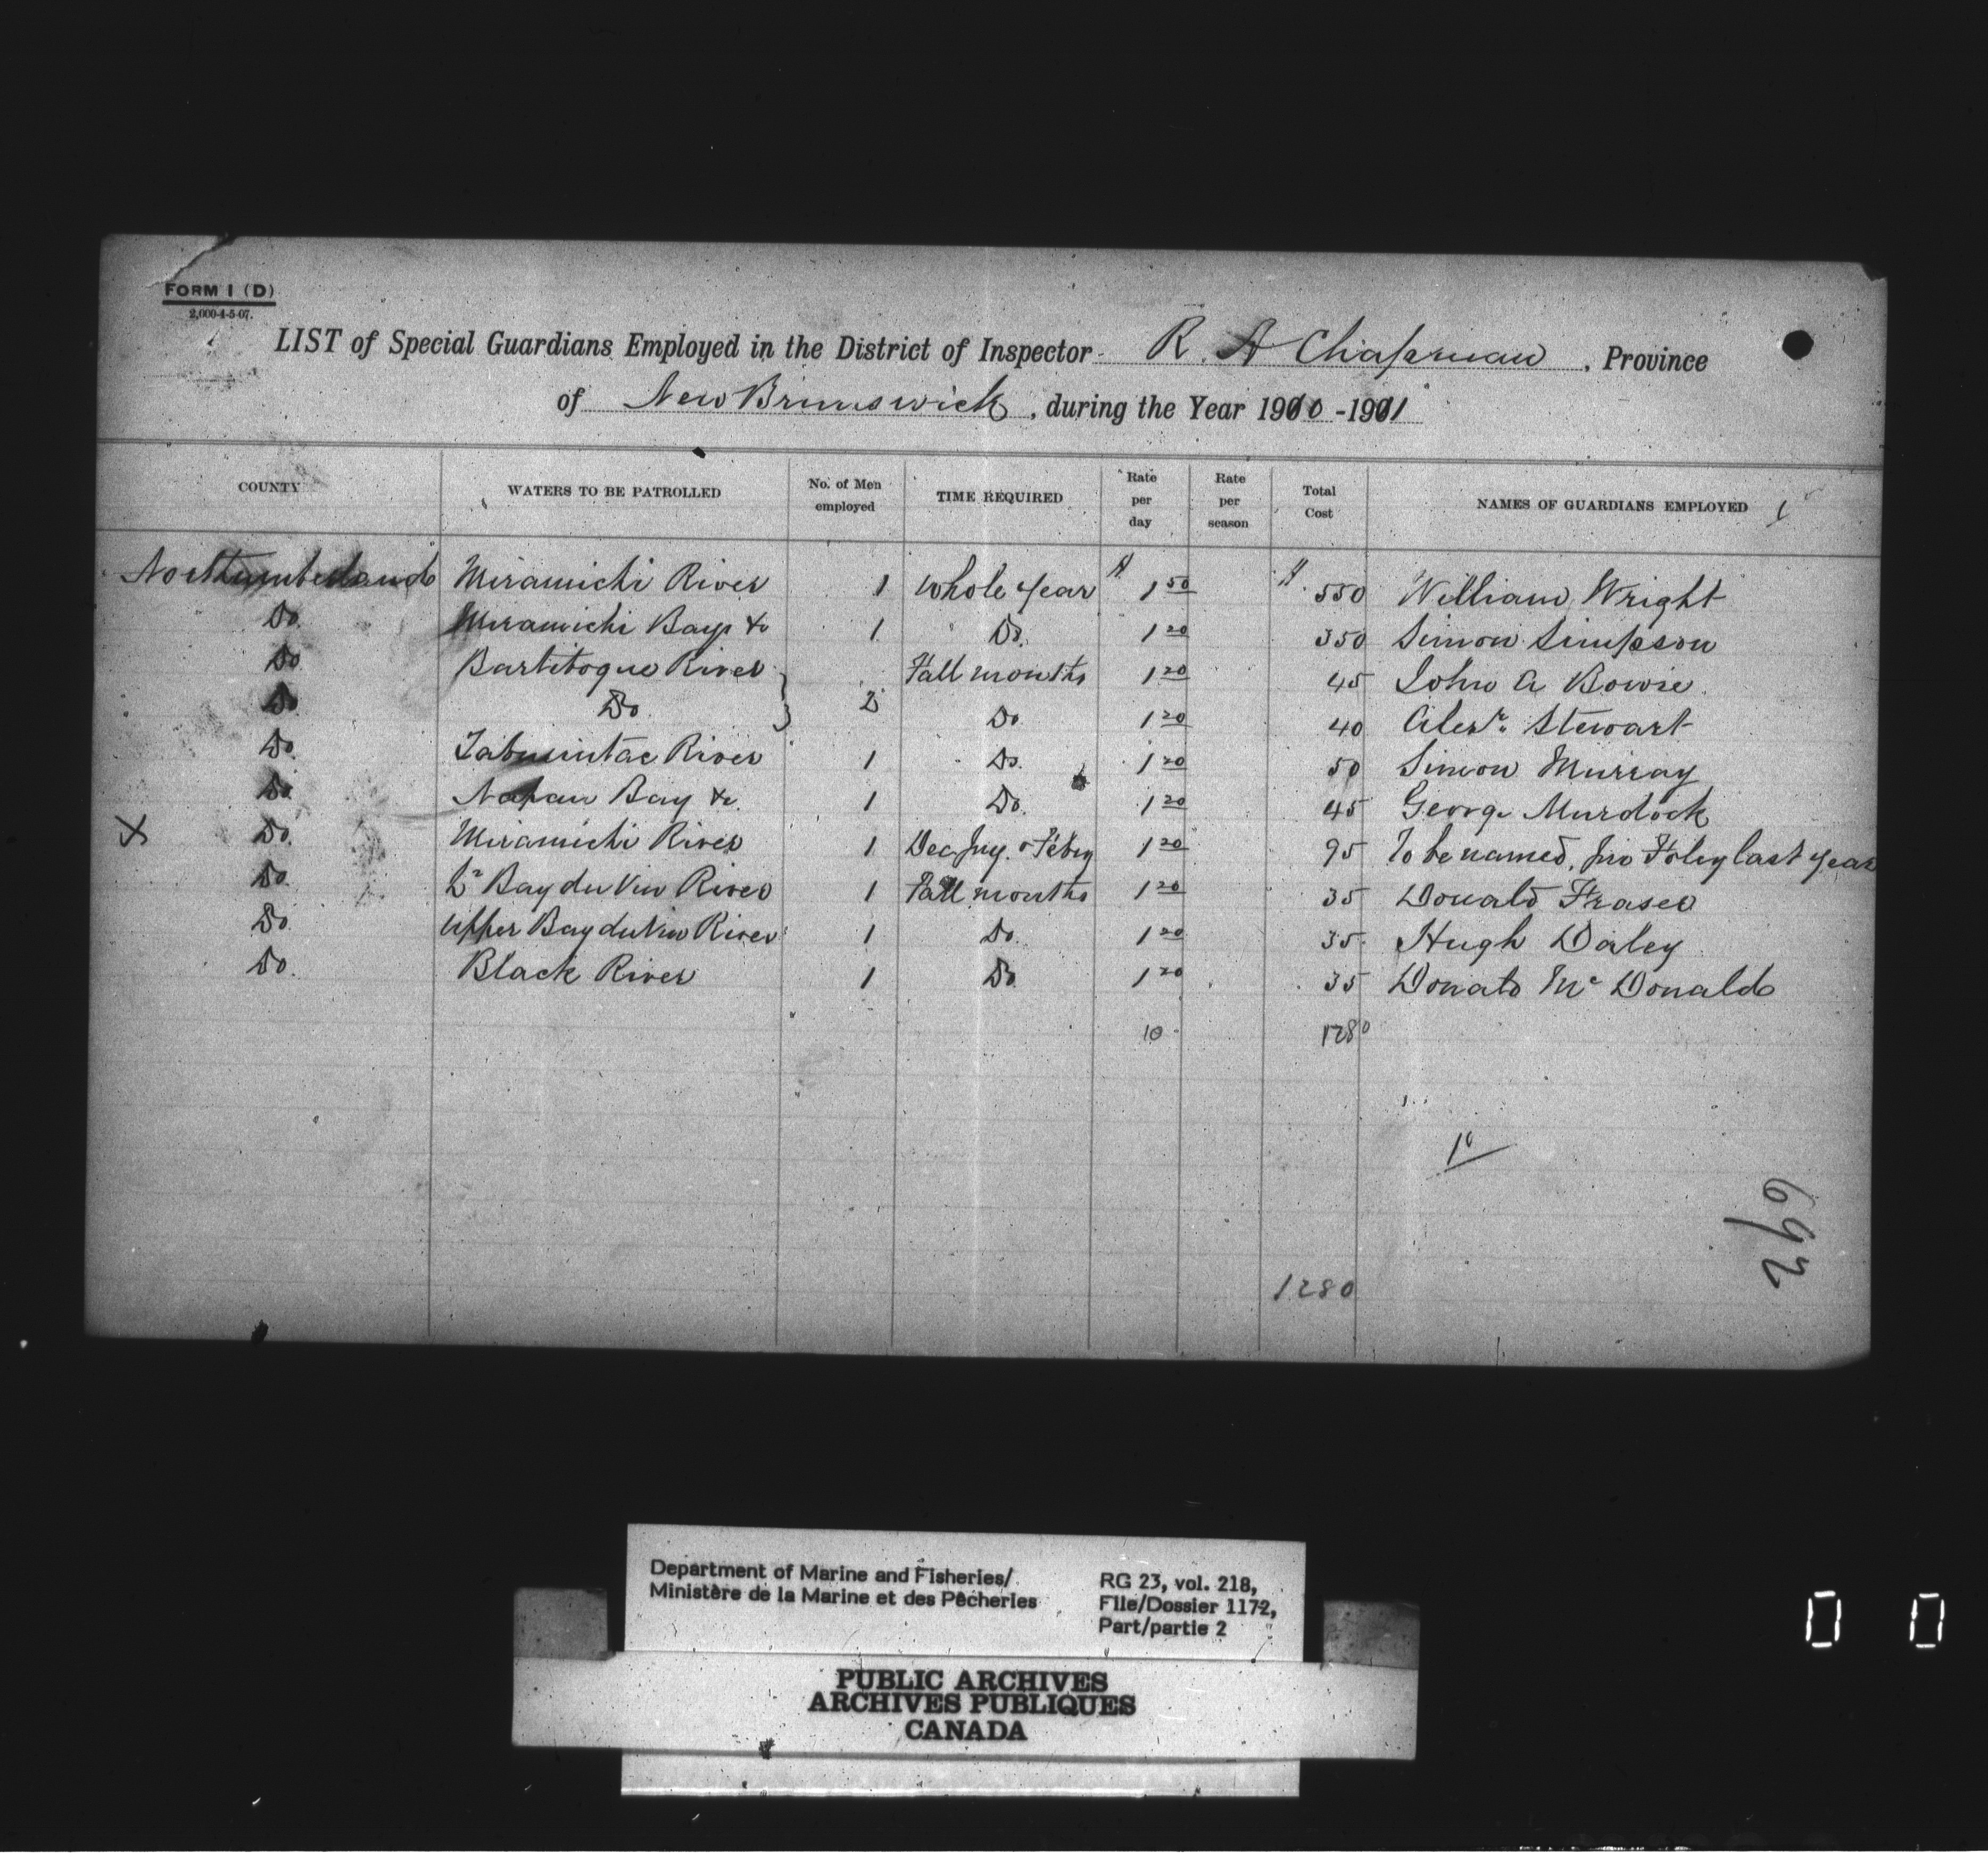 FORM 1 (D)
2,000-4-5-07.
LIST of Special Guardians Employed in the District of Inspector R. A Chapman, Province
of New Brunswick, during the Year 1910-1911
COUNTY WATERS TO BE PATROLLED No. of Men employed TIME REQUIRED Rate per day Rate per season Total Cost NAMES OF GUARDIANS EMPLOYED
Northumberland Miramichi River 1 Whole year $ 1 50 $ 550 William Wright
Do. Miramichi Bay &c 1 Do. 1 20 350 Simon Simpson
Do Bartibogue River Fall months 1 20 45 John A Bowie
Do Do } 2 Do 1 20 40 Alexr. Stewart
Do. Tabusintac River 1 Do. 1 20 50 Simon Murray
Do. Napan Bay &c. 1 Do. 1 20 45 George Murdock
X Do. Miramichi River 1 Dec Jny. & Febry 1 20 95 To be named, Jno Foley last year
Do. Lr Bay du Vin River 1 Fall months 1 20 35 Donald Fraser
Do. Upper Bay du Vin River 1 Do. 1 20 35 Hugh Daley
Do. Black River 1 Do 1 20 35 Donald Mc Donald
10 1280
10
692
1280
Department of Marine and Fisheries/
Ministère de la Marine et des Pêcheries
RG 23, vol. 218,
File/Dossier 1172,
Part/partie 2
PUBLIC ARCHIVES
ARCHIVES PUBLIQUES
CANADA
0 0